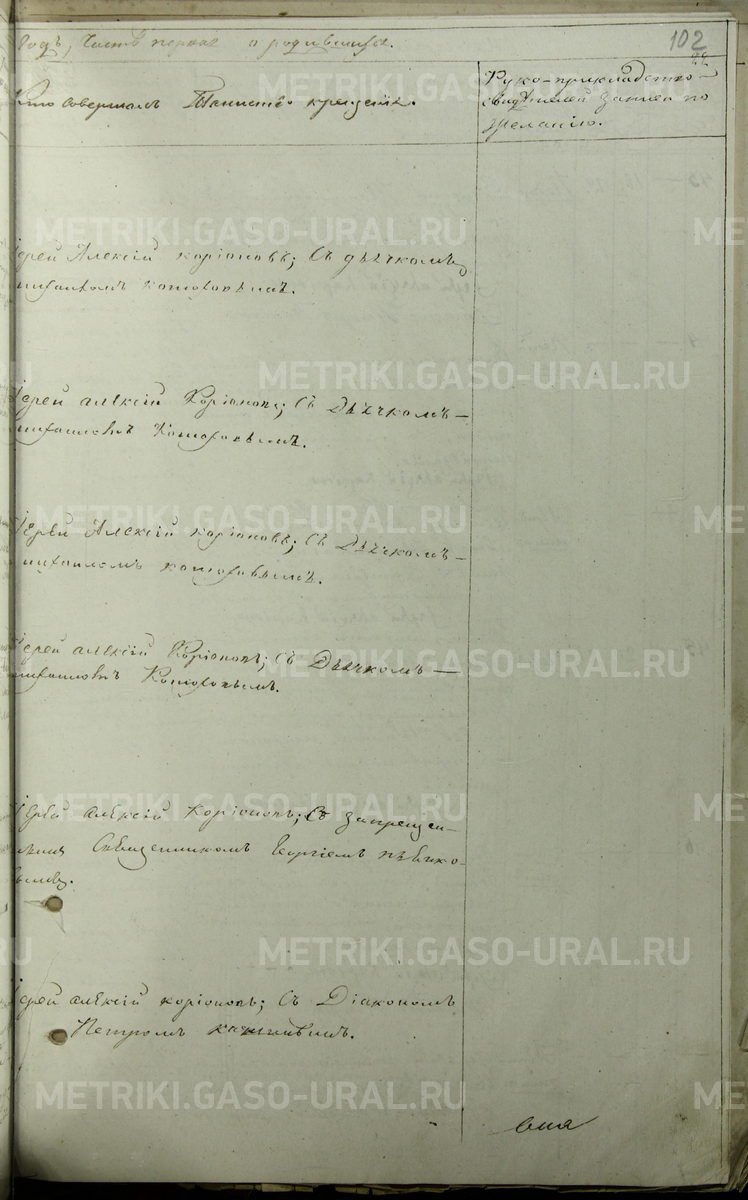 Годъ, Часть первая о родившихся.
102
Кто совершалъ Таинство крещенія.
Рукоприкладство
свидѣтелей записи по
желанію.
METRIKI.GASO-URAL.RU
Іерей Алексій Коріоновъ; Съ дьячкомъ
михаиломъ
METRIKI.GASO-URAL.RU
Іерей алексій Коріоновъ; Съ Дьячкомъ —
михаиломъ
METRIKI.GASO-URAL.RU
Іерей Алексій Коріоновъ; Съ Дьячкомъ —
михаиломъ
METRIKI.GASO-URAL.RU
Іерей алексій Коріоновъ; Съ Дьячкомъ —
михаиломъ
METRIKI.GASO-URAL.RU
Іерей алексій Коріоновъ; Съ запрещен-
нымъ Священникомъ Георгіемъ
METRIKI.GASO-URAL.RU
Іерей алексій Коріоновъ; Съ Діакономъ
Петромъ
METRIKI.GASO-URAL.RU